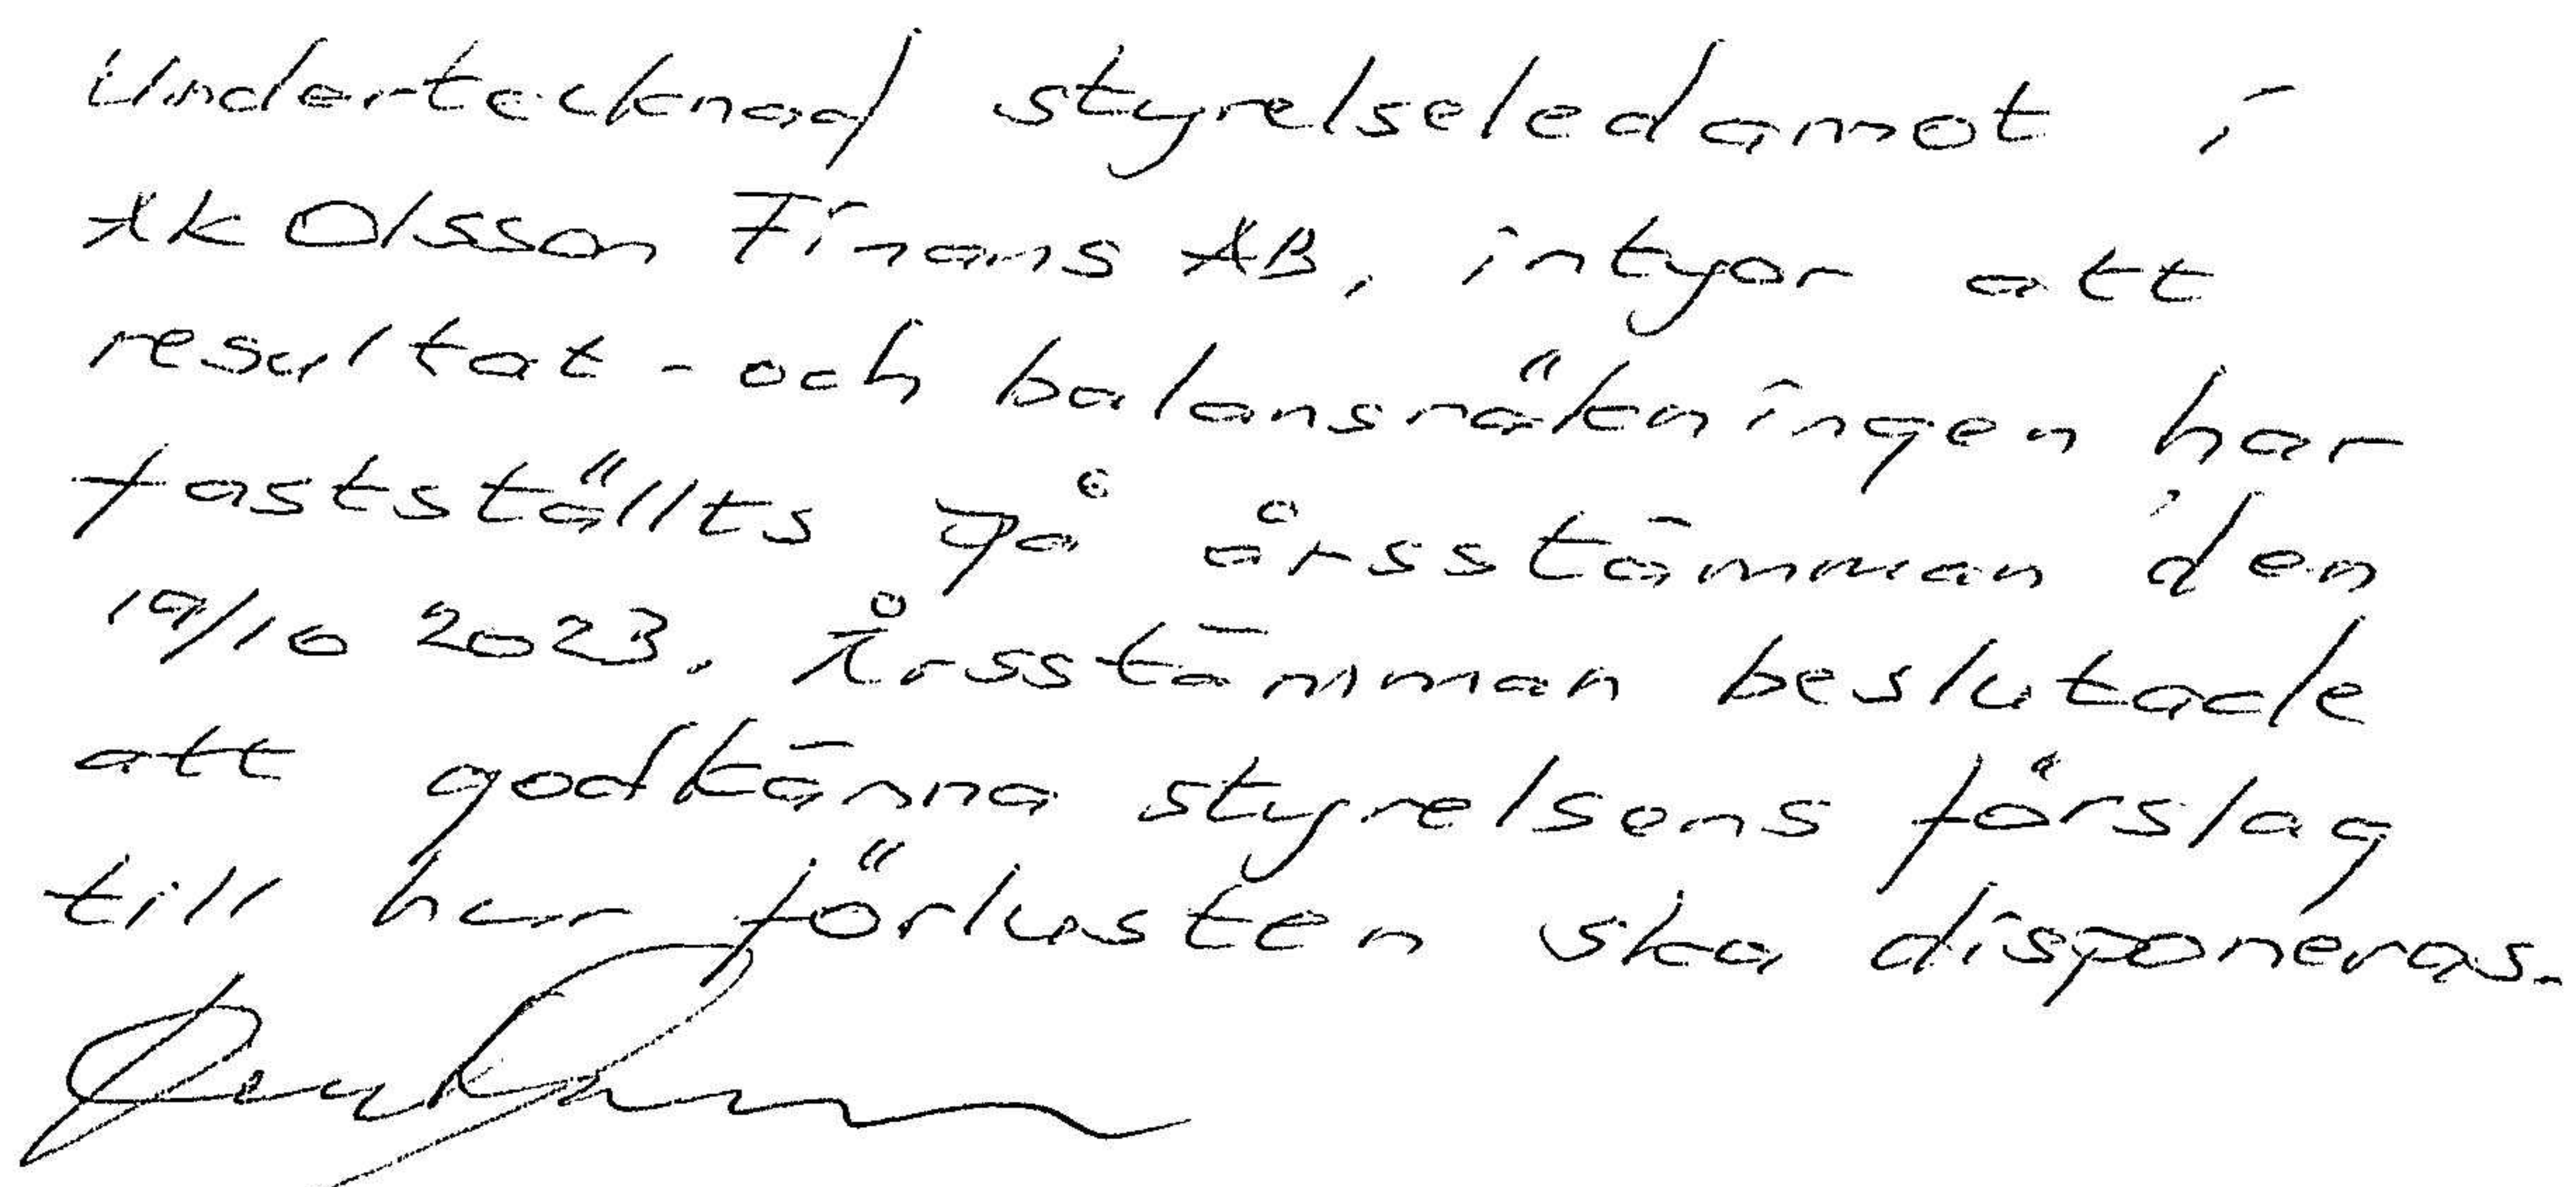 Undertecknad styrelseledamot i
AK Olsson Finans AB, intygar att
resultat- och balansräkningen har
fastställts på årsstämman den
19/10 2023. Årsstämman beslutade
att godkänna styrelsens förslag
till hur förlusten ska disponeras.